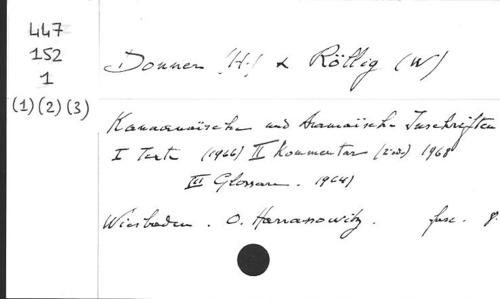 447
152
1
(1) (2) (3)
Donner (H.) & Röllig (W)
Kanaanaïsche und Aramaïsche Inschriften
I Texte (1966) II Kommentar (2ed.) 1968
III Glossare. 1964)
Wiesbaden. O. Harrassowitz. fasc. 8.